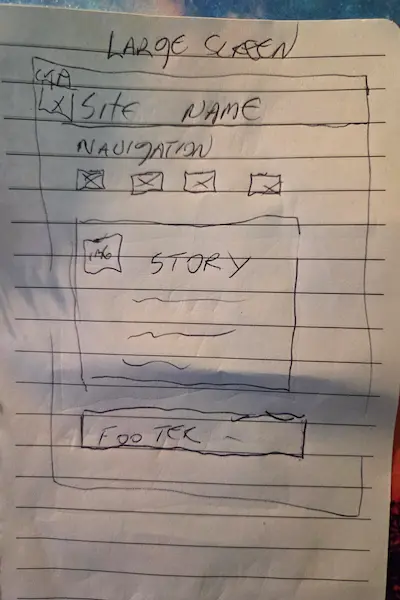 LARGE SCREEN
SITE NAME
NAVIGATION
IMG
STORY
FOOTER